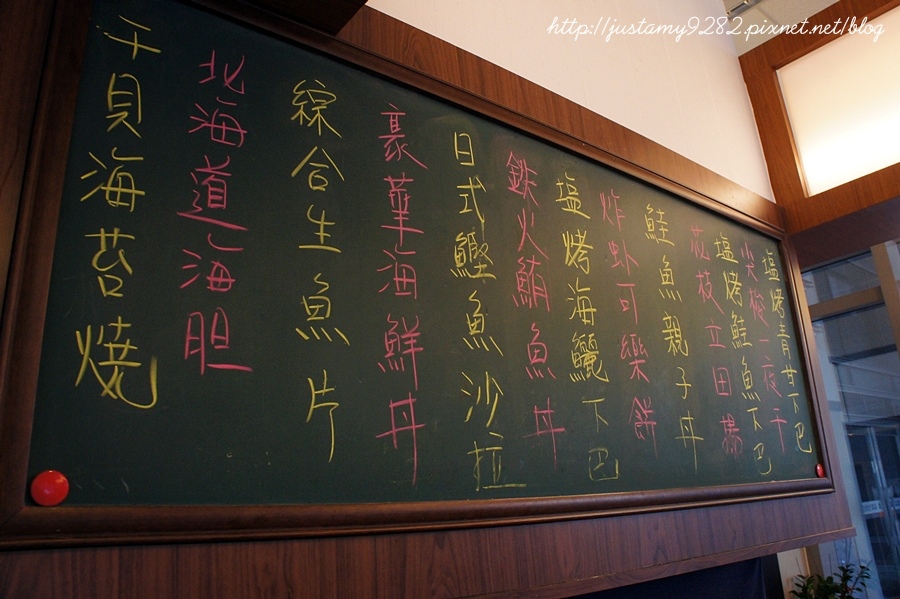 http://justamy9282.pixnet.net/blog
塩烤青甘下巴
尖梭一夜干
塩烤鮭魚下巴
花枝立田揚
鮭魚親子丼
炸虾可樂餅
塩烤海鱺下巴
鉄火鮪魚丼
日式鰹魚沙拉
豪華海鮮丼
綜合生魚片
北海道海胆
干貝海苔燒